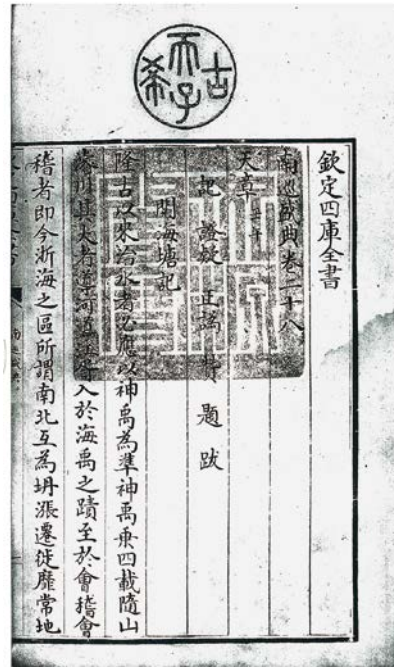 古希天子
欽定四庫全書
南巡盛典卷二十八
天章
記 證 題 跋
閱海塘記
隆古以來治水者必應以神禹為準神禹乘四載隨山
濬川其大者導河導江入於海禹之蹟至於會稽會
稽者即今浙海之區所謂南北互為坍漲遷徙靡常地